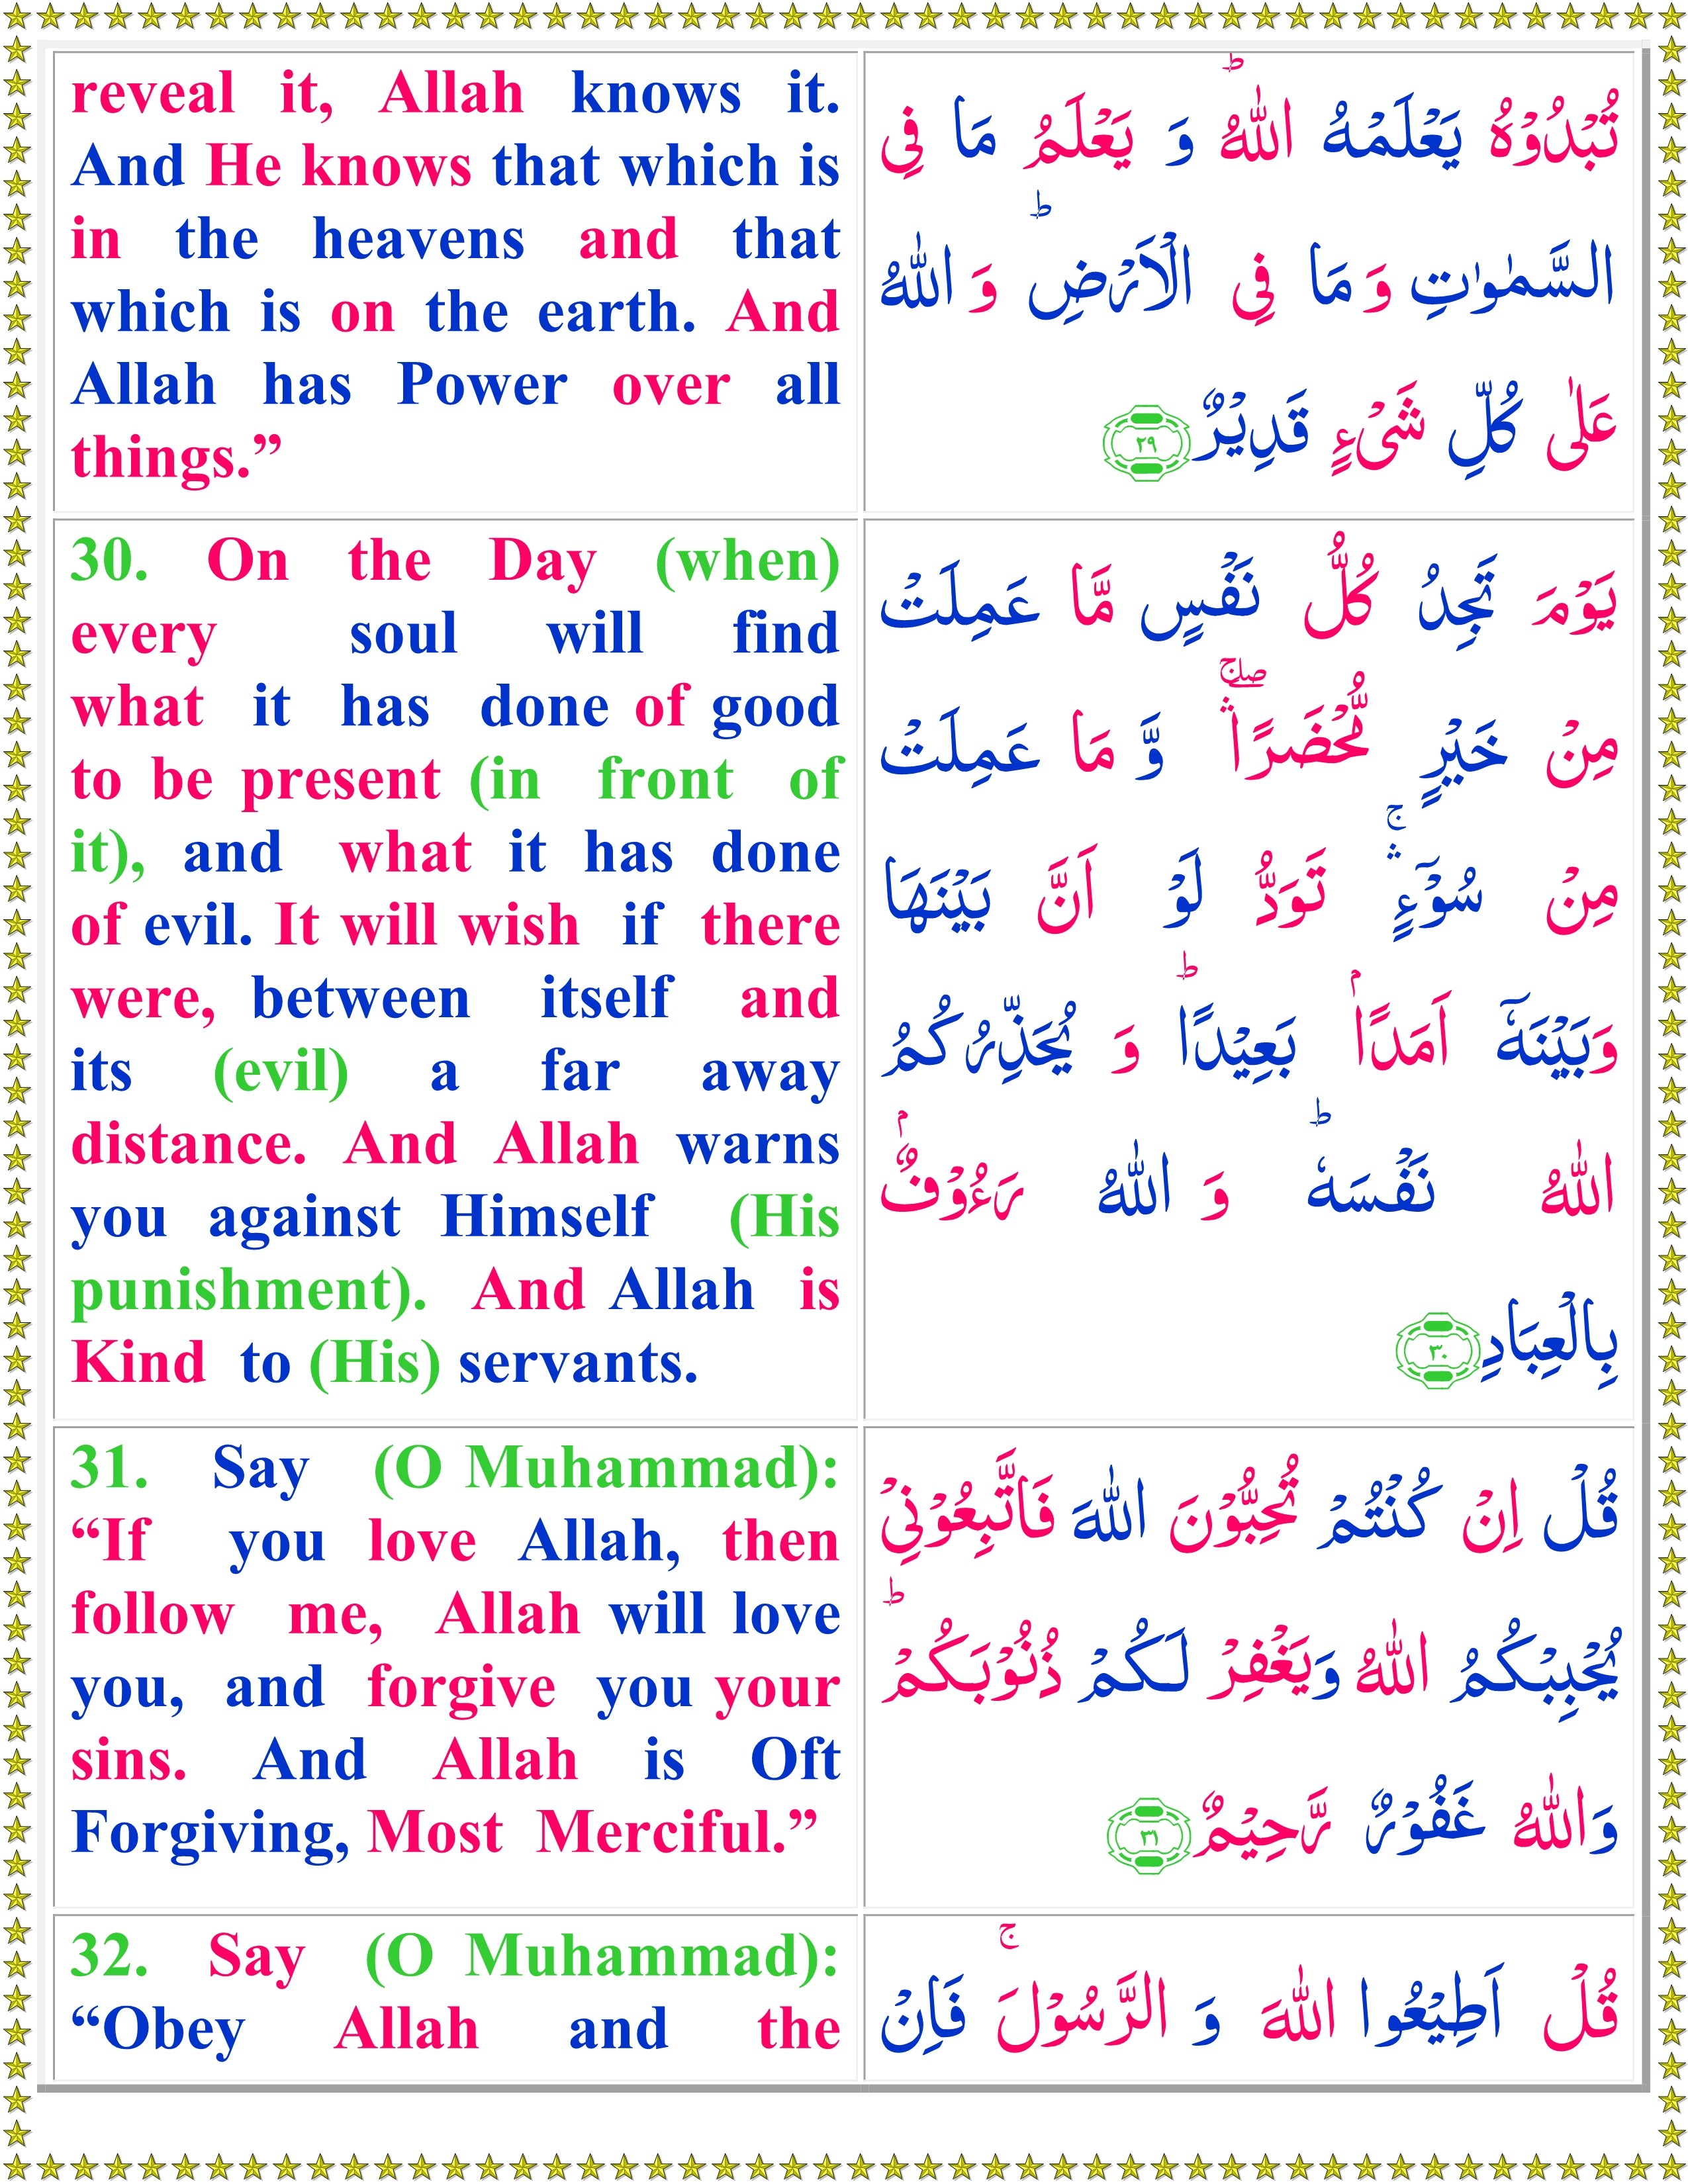 reveal it, Allah knows it.
And He knows that which is
in the heavens and that
which is on the earth. And
Allah has Power over all
things.”
تُبْدُوْهُ يَعْلَمْهُ اللّٰهُ ؕ وَ يَعْلَمُ مَا فِى
السَّمٰوٰتِ وَ مَا فِى الْاَرْضِ ؕ وَ اللّٰهُ
عَلٰى كُلِّ شَىْءٍ قَدِيْرٌ ﴿۲۹﴾
30. On the Day (when)
every soul will find
what it has done of good
to be present (in front of
it), and what it has done
of evil. It will wish if there
were, between itself and
its (evil) a far away
distance. And Allah warns
you against Himself (His
punishment). And Allah is
Kind to (His) servants.
يَوْمَ تَجِدُ كُلُّ نَفْسٍ مَّا عَمِلَتْ
مِنْ خَيْرٍ مُّحْضَرًا ۛۖۚ وَّ مَا عَمِلَتْ
مِنْ سُوْٓءٍ ۛۚ تَوَدُّ لَوْ اَنَّ بَيْنَهَا
وَبَيْنَهٗۤ اَمَدًاۢ بَعِيْدًا ؕ وَ يُحَذِّرُكُمُ
اللّٰهُ نَفْسَهٗ ؕ وَ اللّٰهُ رَءُوْفٌۢ
بِالْعِبَادِ ﴿۳۰﴾
31. Say (O Muhammad):
“If you love Allah, then
follow me, Allah will love
you, and forgive you your
sins. And Allah is Oft
Forgiving, Most Merciful.”
قُلْ اِنْ كُنْتُمْ تُحِبُّوْنَ اللّٰهَ فَاتَّبِعُوْنِىْ
يُحْبِبْكُمُ اللّٰهُ وَيَغْفِرْ لَـكُمْ ذُنُوْبَكُمْ ؕ
وَاللّٰهُ غَفُوْرٌ رَّحِيْمٌ ﴿۳۱﴾
32. Say (O Muhammad):
“Obey Allah and the
قُلْ اَطِيْعُوا اللّٰهَ وَ الرَّسُوْلَ ۚ فَاِنْ